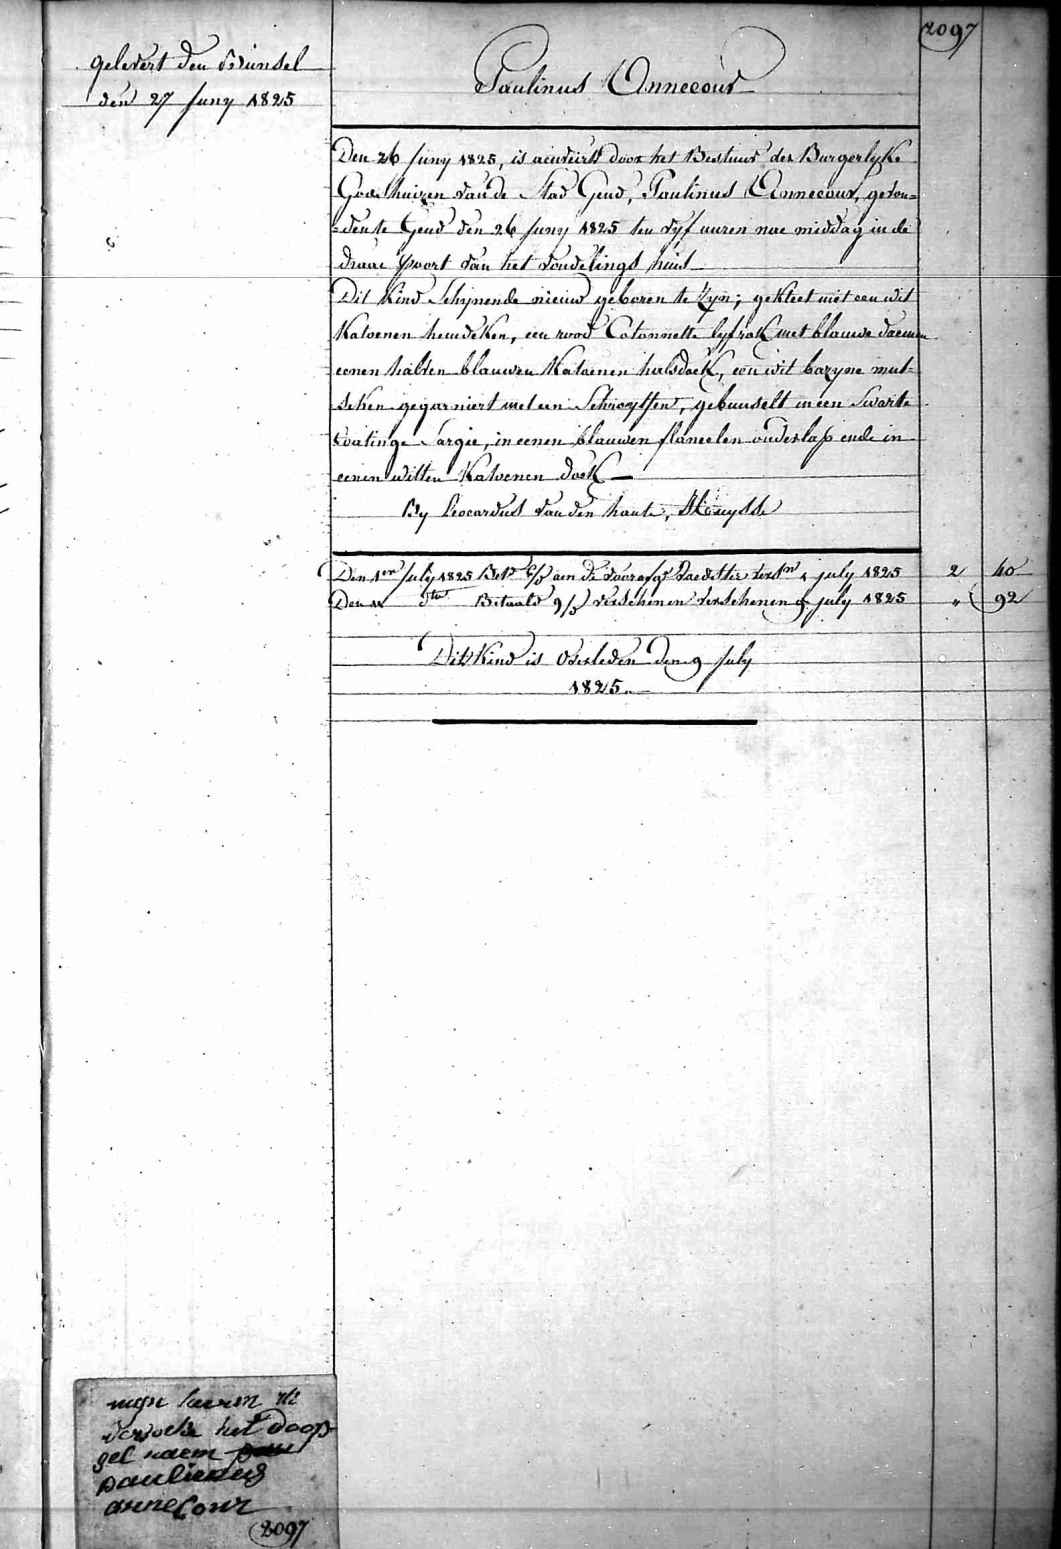 2097
gelevert den Buinsel
den 27 Juny 1825
Paulinus Annecour
Den 26 Juny 1825, is acuveirt door het Bestuur der Burgerlyke
Gods huizen van de Stad Gend, Paulinus Annecour, gevon=
=den te Gend den 26 Juny 1825 ten vyf uuren nae middag in de
draae poort van het vondelings huis
Dit kind Schynende nieuw geboren te zyn; gekleet met een wit
Katoenen hemdeken, een rood Cotonnette lyfrok met blauwe
eenen halven blauwen Katoenen halsdoek, een wit bazyne mut=
seken gegarniert met een , gebunselt in een Swarte
Coatinge Sargie, in eenen blauwen flaneelen onderlap ende in
eenen witten Katoenen doek
By Leocardus van den haute, Kruysse
Den 1en July 1825 Bet. aen de voorafge 1 July 1825 2 40
Den 11 dto Betaald 9/5 verschenen 9 July 1825 " 92
Dit Kind is Overleden den 9 July
1825.
myn heeren
versoeke het doop
sel naem
paulienus
annecour
2097